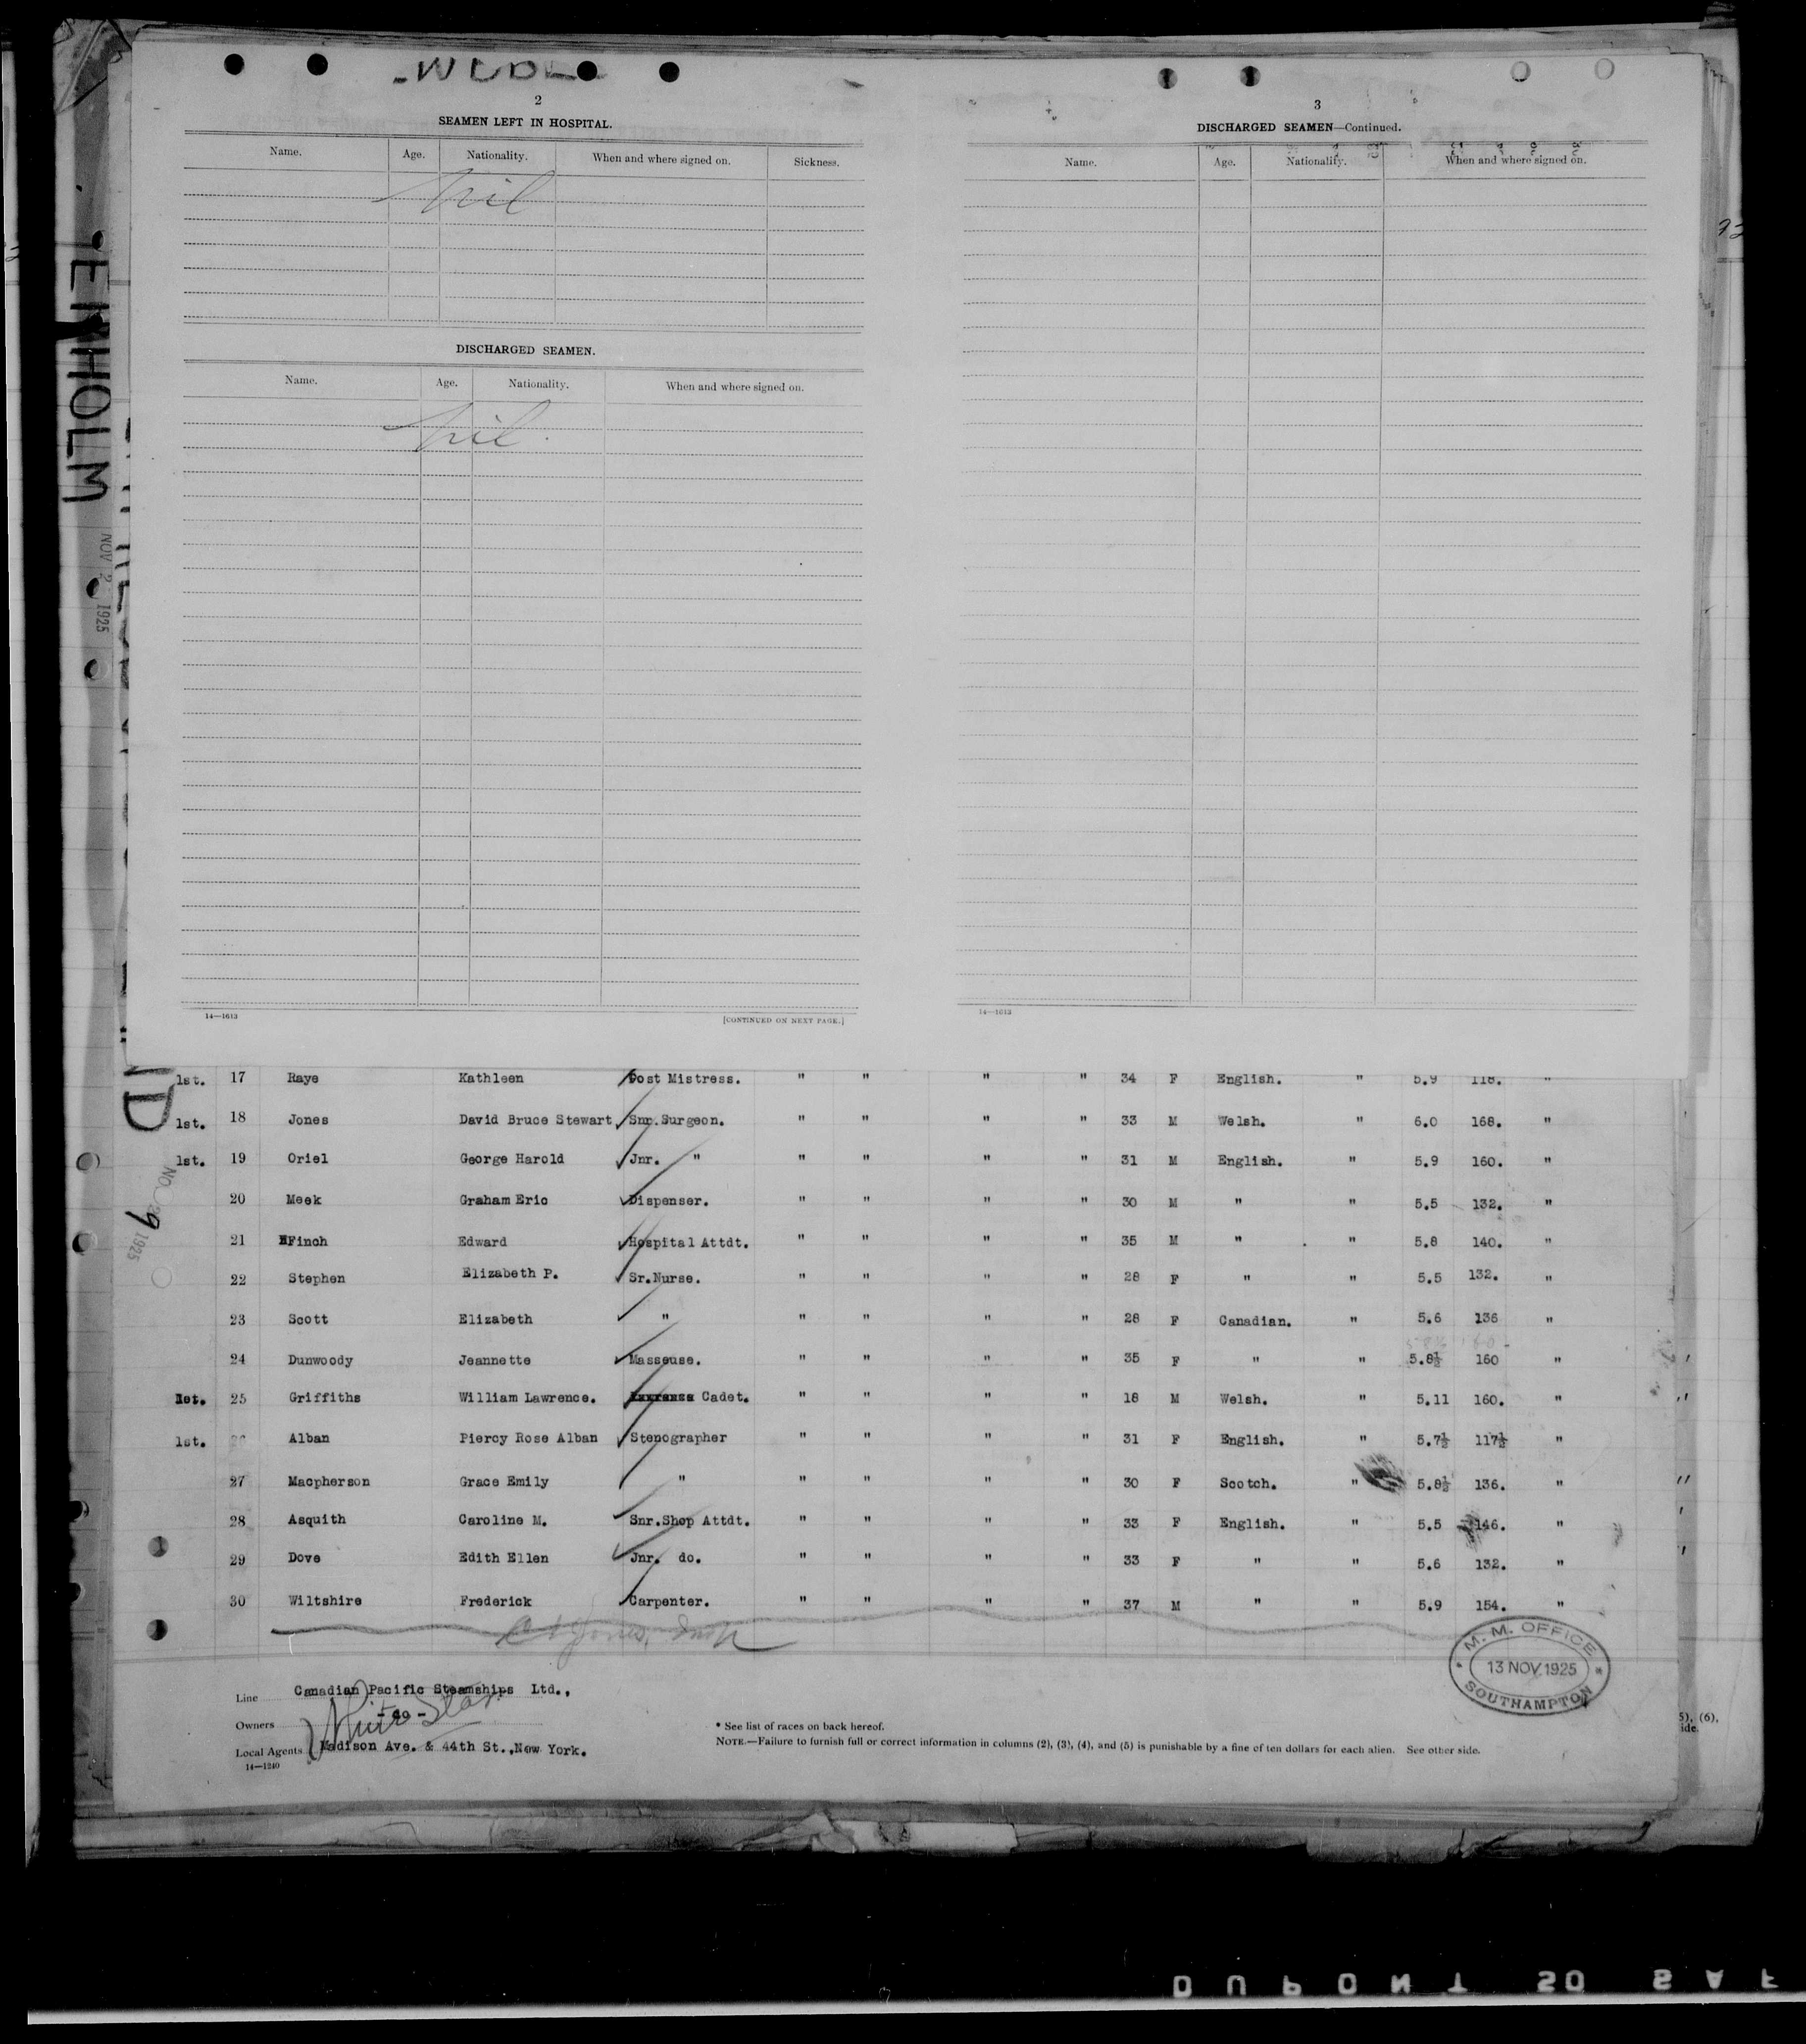 2
SEAMEN LEFT IN HOSPITAL.
Name. Age. Nationality. When and where signed on. Sickness.
nil
DISCHARGED SEAMEN.
Name. Age. Nationality. When and where signed on.
nil.
14—1613 [CONTINUED ON NEXT PAGE.]
3
DISCHARGED SEAMEN—Continued.
Name. Age. Nationality. When and where signed on.
14—1613
ENHOLM
1925
1925
1st. 17 Raye Kathleen Post Mistress. " " " " 34 F English. " 5.9 118. "
1st. 18 Jones David Bruce Stewart Snr.Surgeon. " " " " 33 M Welsh. " 6.0 168. "
1st. 19 Oriel George Harold Jnr. " " " " " 31 M English. " 5.9 160. "
20 Meek Graham Eric Dispenser. " " " " 30 M " " 5.5 132. "
21 Finch Edward Hospital Attdt. " " " " 35 M " " 5.8 140. "
22 Stephen Elizabeth P. Sr.Nurse. " " " " 28 F " " 5.5 132. "
23 Scott Elizabeth " " " " " 28 F Canadian. " 5.6 136 "
24 Dunwoody Jeannette Masseuse. " " " " 35 F " " 5.8½ 160 "
1st. 25 Griffiths William Lawrence. Cadet. " " " " 18 M Welsh. " 5.11 160. "
1st. Alban Piercy Rose Alban Stenographer " " " " 31 F English. " 5.7½ 117½ "
27 Macpherson Grace Emily " " " " " 30 F Scotch. " 5.8½ 136. "
28 Asquith Caroline M. Snr.Shop Attdt. " " " " 33 F English. " 5.5 146. "
29 Dove Edith Ellen Jnr. do. " " " " 33 F " " 5.6 132. "
30 Wiltshire Frederick Carpenter. " " " " 37 M " " 5.9 154. "
Jones, Insp
M. M. OFFICE
13 NOV 1925
SOUTHAMPTON
Line Canadian Pacific Steamships Ltd.,
Owners -do-
White Star
Local Agents Madison Ave. & 44th St.,New York.
14—1240
* See list of races on back hereof.
NOTE.—Failure to furnish full or correct information in columns (2), (3), (4), and (5) is punishable by a fine of ten dollars for each alien. See other side.
5), (6),
ide.
DUPONT SO SAF